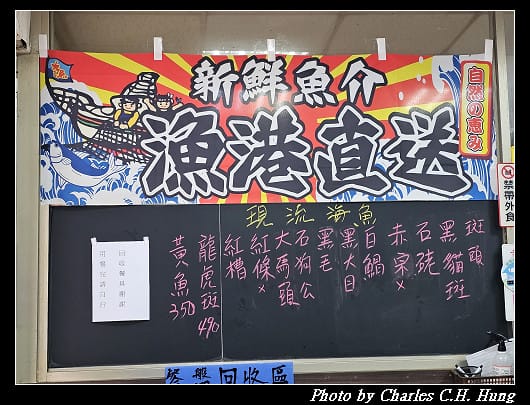 新鮮魚介
漁港直送
自然の恵み
禁帶外食
現流海魚
斑頭
黑貓斑
石硓
赤宗×
白鯧
黑大目
黑毛
石狗公
大馬頭
紅條×
紅糟
龍虎斑490
黃魚350
用餐完請自行
回收餐具謝謝
餐盤回收區
Photo by Charles C.H. Hung